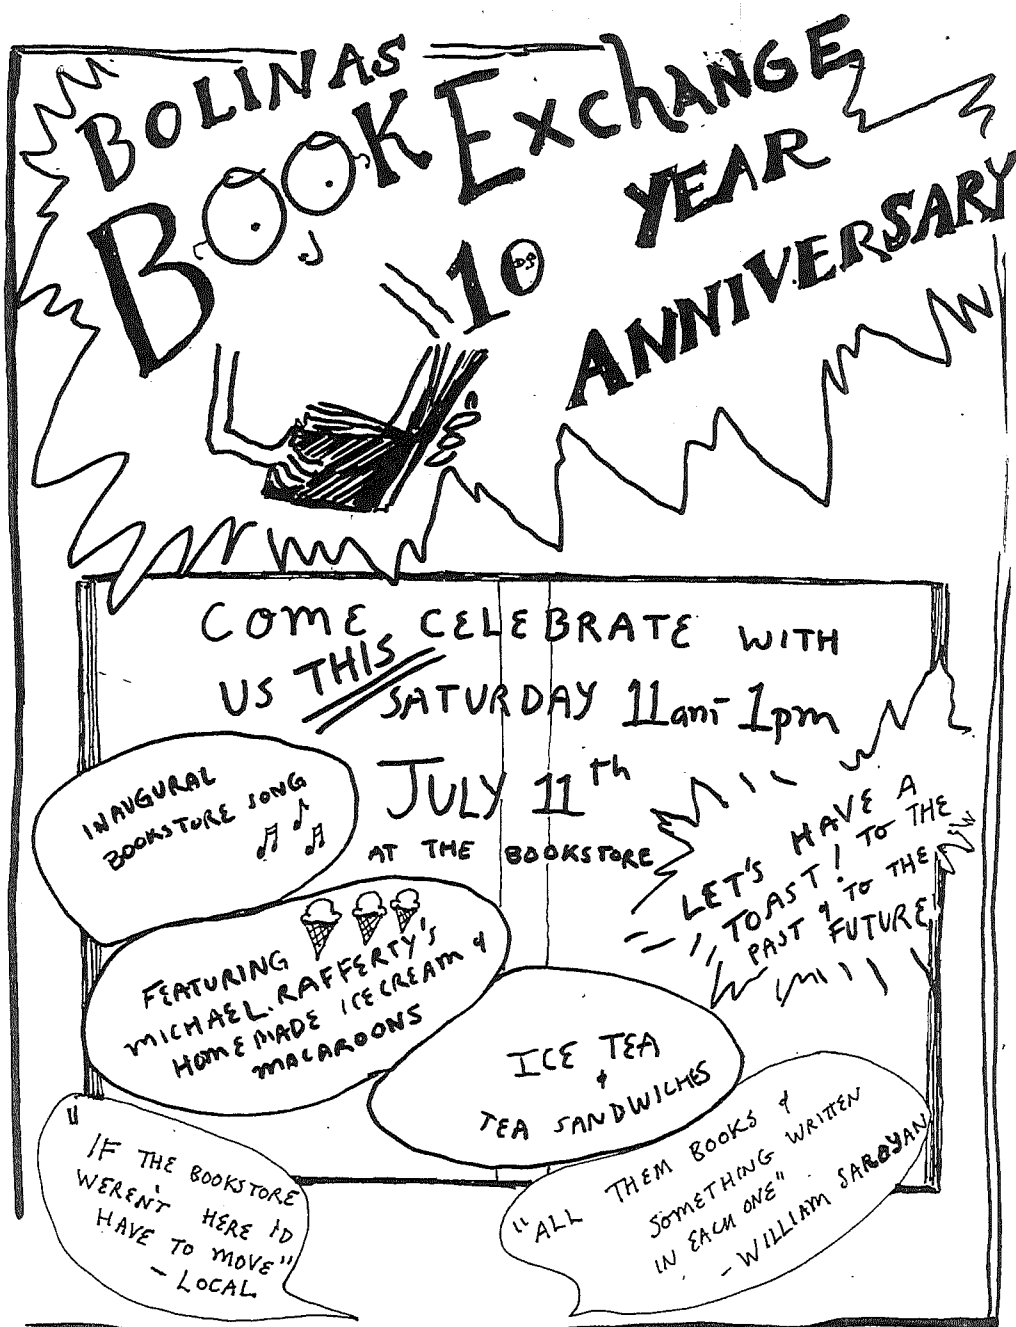 BOLINAS
BOOK EXchANGE
10 YEAR
ANNIVERSARY
COME CELEBRATE WITH
US THIS SATURDAY 11am-1pm
JULY 11th
AT THE BOOKSTORE
INAUGURAL
BOOKSTORE SONG
LET'S HAVE A
TOAST! TO THE
PAST & TO THE
FUTURE
FEATURING
MICHAEL RAFFERTY'S
HOMEMADE ICECREAM &
MACAROONS
ICE TEA
&
TEA SANDWICHES
"IF THE BOOKSTORE
WEREN'T HERE I'D
HAVE TO MOVE"
- LOCAL
"ALL THEM BOOKS &
SOMETHING WRITTEN
IN EACH ONE"
- WILLIAM SAROYAN